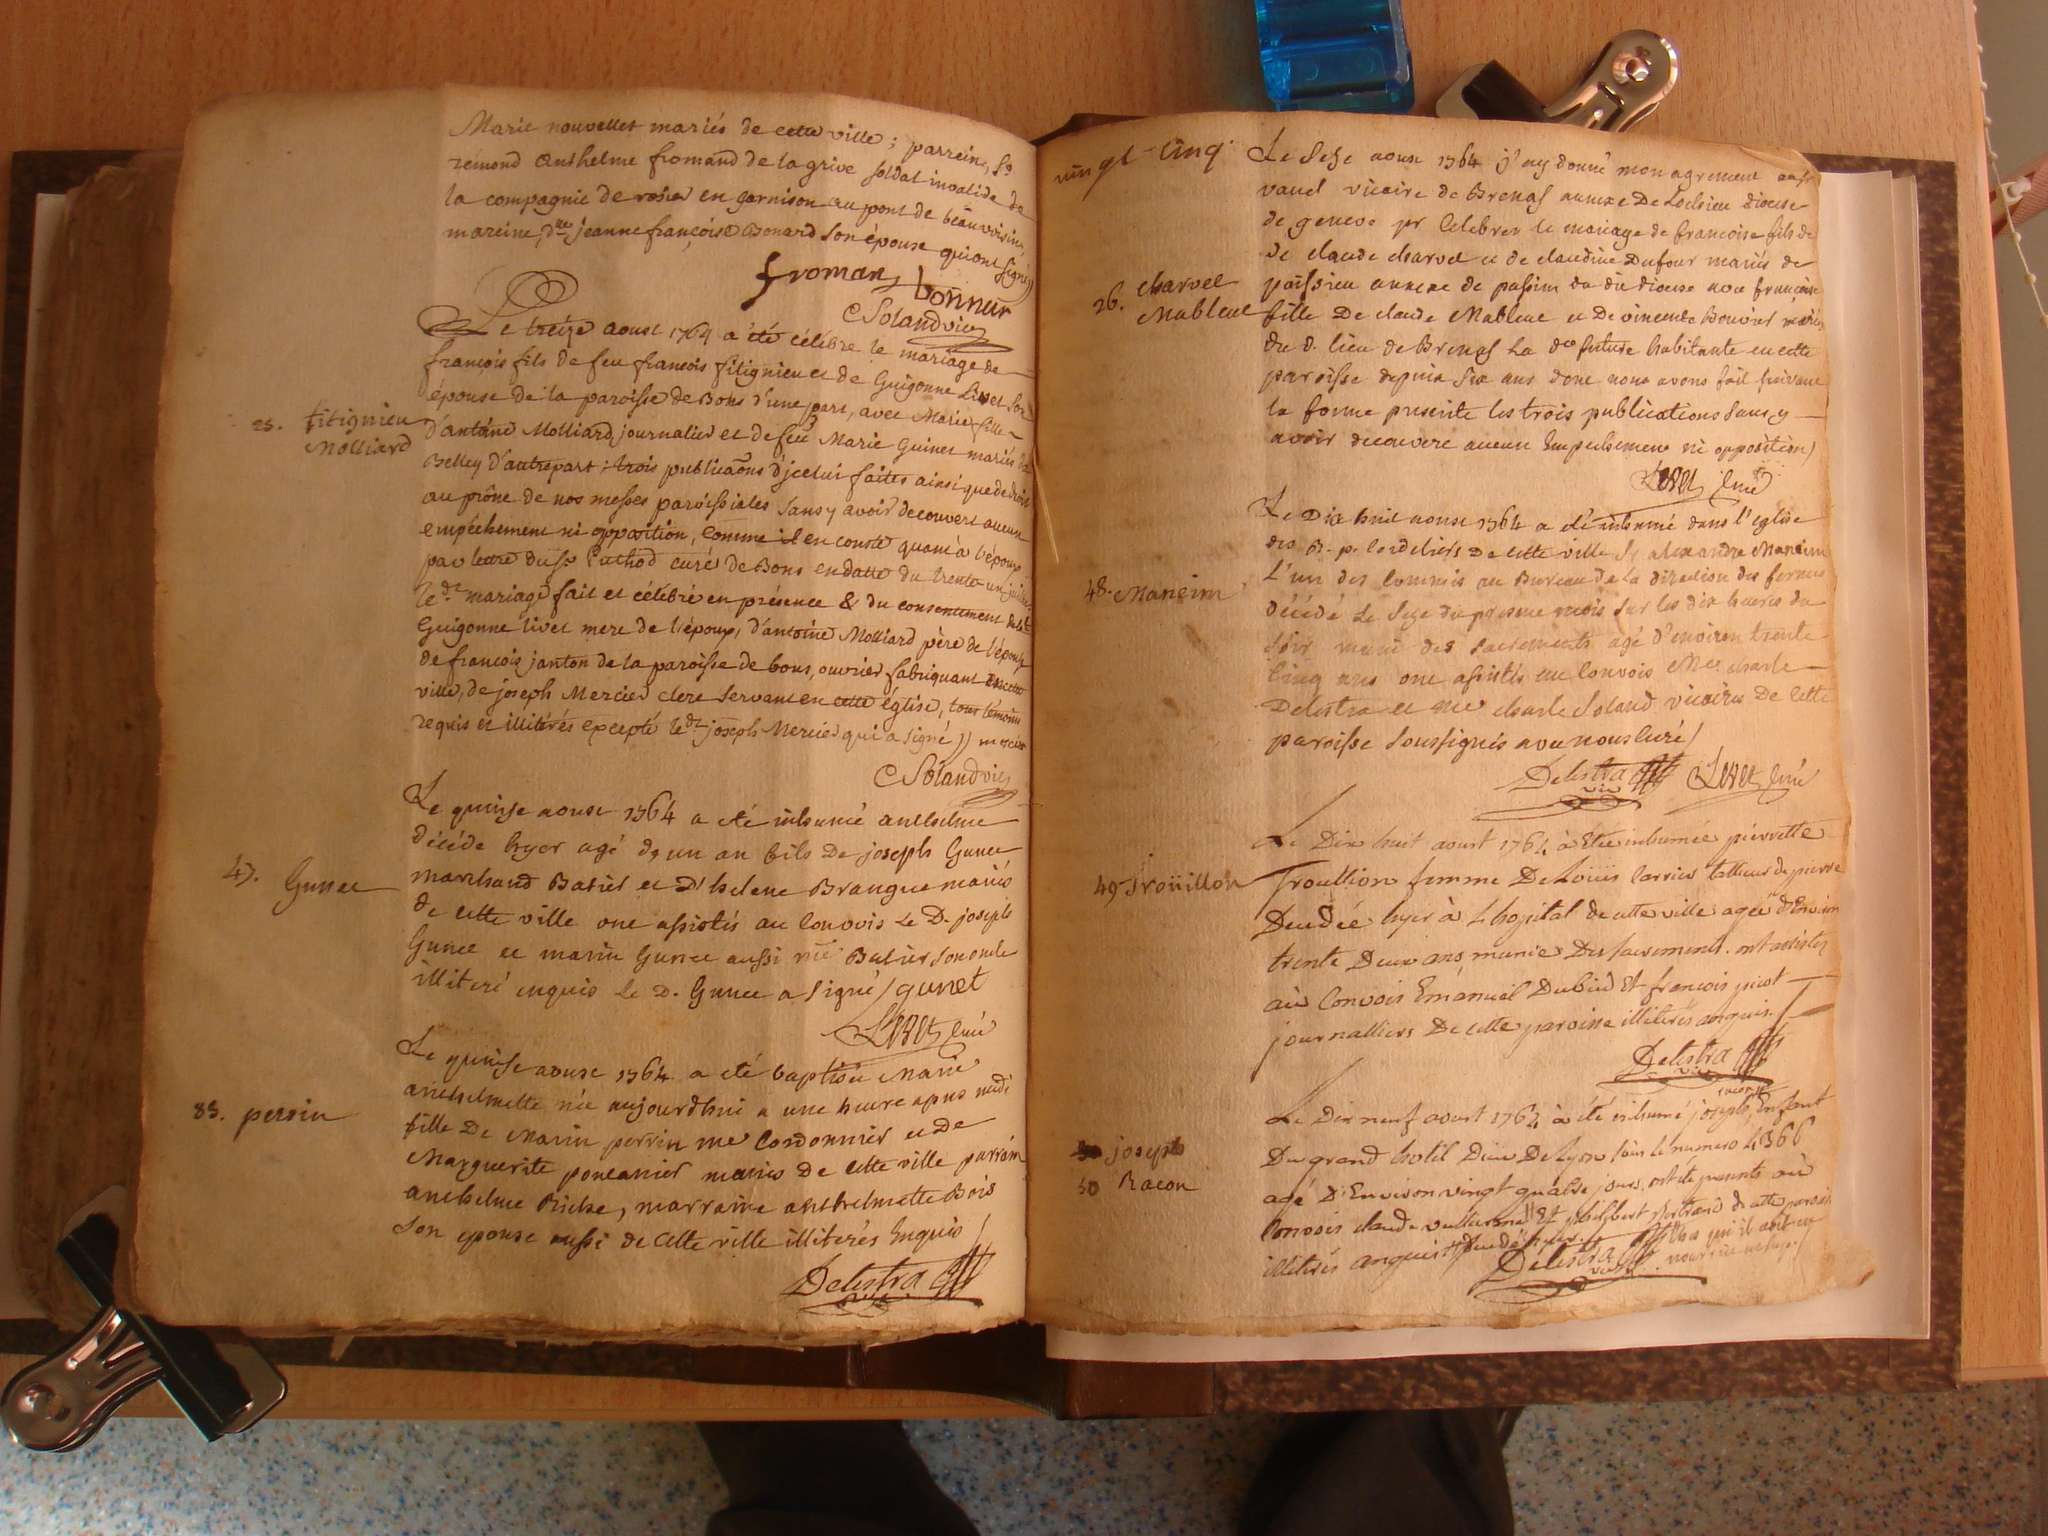 Marie nouvellet mariés de cette ville ; parrein, Sr
remond anthelme fromand de la grive soldat invalide de
la compagnie de rosie en garnison au pont de beauvoisin
mareine, dlle jeanne françoise Bonard son épouse qui ont signé
froman bonnar
CSoland vic
Le treize aoust 1764 a été célébré le mariage de
françois fils de feu francois fitignieu et de Guigonne Livet son
épouse de la paroisse de Bons d'une part, avec Marie fille
25. fitignieu
Molliard
d'antoine Molliard, journalier et de feu Marie Guinet mariés de
Belley d'autre part ; trois publicaons d'jcelui faites ainsi que de droit
au prône de nos messes paroissiales sans y avoir decouvert aucun
empêchement ni opposition, comme il en conste quant à l'époux
par lettre du Sr Puthod curé de Bons en datte du trente un juillet
le dt mariage fait et célébré en présence & du consentement de la de
Guigonne livet mere de l'époux, d'antoine Molliard père de l'épouse
de francois janton de la paroisse de bons, ouvrier fabriquant en cette
ville, de joseph Mercier clerc servant en cette église, tous témoins
requis et illitérés excepté le dt joseph Mercier qui a signé )) mercier
CSoland vic
Le quinse aoust 1764 a eté inhumé anthelme
décédé hyer agé d'un an fils de joseph Gunet
47. Gunet
marchand Batier et d'helene Brangue mariés
de cette ville ont assistés au convois le D. joseph
Gunet et marin Gunet aussi me Batier son oncle
illiteré enquis le D. Gunet a signé / gunet
Leret curé
Le quinse aoust 1764 a eté baptisée Marie
anthelmette née aujourdhui a une heure apres midi
83. perrin
fille de Marin perrin me Cordonnier et de
Marguerite pontanier mariés de cette ville parrain
anthelme Riche, marraine anthelmette Bois
son epouse aussi de cette ville illiterés Enquis /
Delestra
vic
vingt-cinq.
Le Sese aoust 1764 j'ay donné mon agrement au Sr
vauel vicaire de Brenas annexe De Lochieu diocese
de geneve pr Celebrer le mariage de francoise fils de
de claude charvet et de claudine Dufour mariés de
26. charvet
Mableut
poissieu annexe de passin du dit diocese avec françoise
fille De claude Mableut et De vincente Bouvier mariés
du d. lieu de Brenas La de future habitante en cette
paroisse depuis six ans dont nous avons fait suivant
la forme presente les trois publications sans y
avoir decouvert aucun Empechement ni opposition /
Leret Curé
Le Dix huit aoust 1764 a eté inhumé dans l'eglise
des R. p. Cordeliers de cette ville Sr alexandre Mancim
48. Mancim
L'un des commis au Bureau de La direction des fermes
décédé Le Sese du present mois sur les dix heures du
soir munie des sacrements agé d'environ trente
cinq ans ont assistés au Convois Mre charle
Delestra et Mre charle Soland vicaires de cette
paroisse soussignés avec nous curé /
Delestra
vic
Leret curé
Le Dix huit aoust 1764 à Eté inhumée pierrette
49 Troüillon
Troullion femme De Loüis Carrier tallieur de pierre
Decedée hyer à L hopital de cette ville agée d'Environ
trente Deux ans munie Des sacrements. ont assistez
aù Convois Emanuel Dubied Et francois picot
journalliers De cette paroisse illiterés anquis. /
Delestra
vic
racon
Le Dix neuf aoust 1764 à été inhumé joseph, Enfant
50 joseph
Racon
Du grand hotel Dieu De Lyon sous Le numero 4366
agé D'Environ vingt quatre jours, ont été presents aù
Convois claude Et philibert Bertrand de cette paroisse
illitérés anquis # decedé hyer # chez qui il avoit eté
Delestra
vic